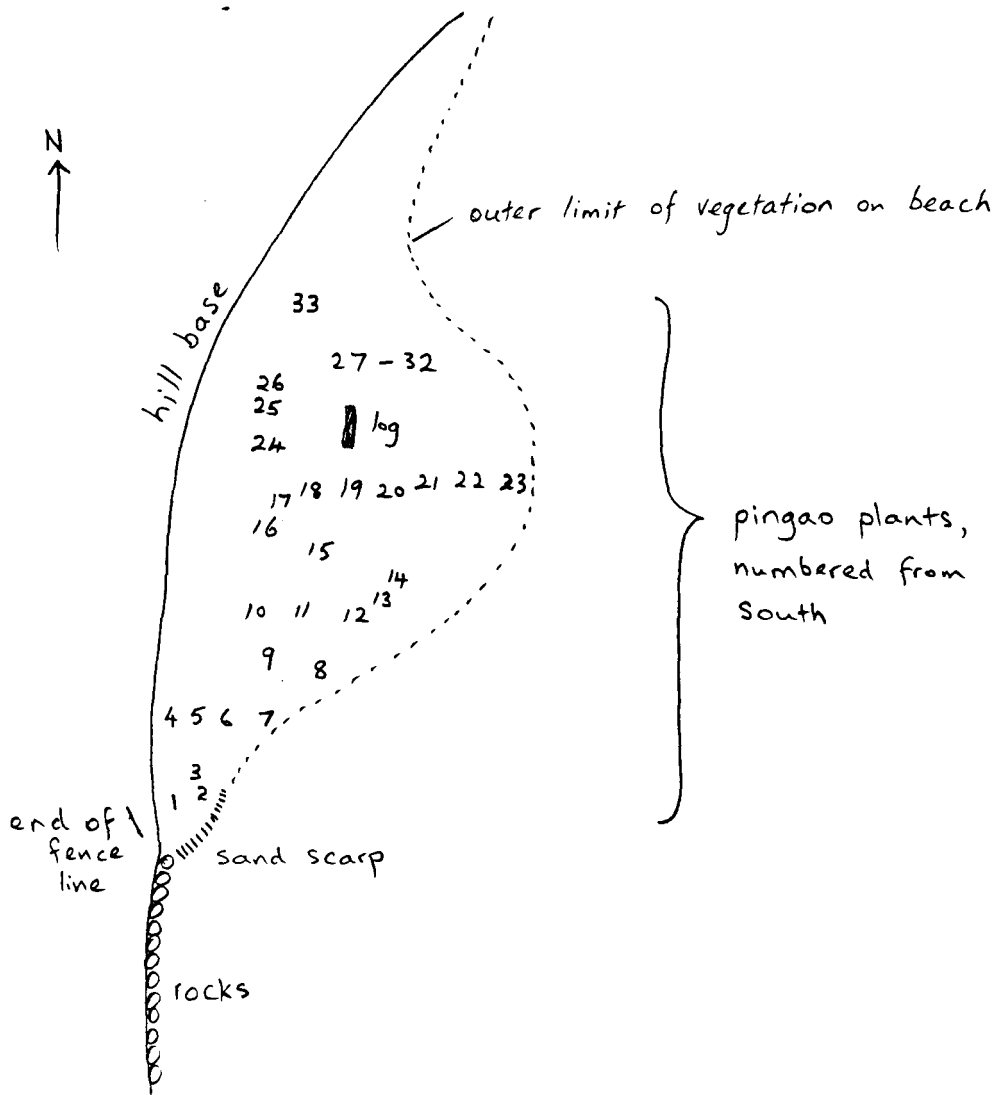 N
outer limit of vegetation on beach
hill base
33
27 - 32
26
25
log
24
17 18 19 20 21 22 23
16
15
14
13
10 11 12
9
8
4 5 6 7
3
2
1
pingao plants,
numbered from
South
end of
fence
line
sand scarp
rocks